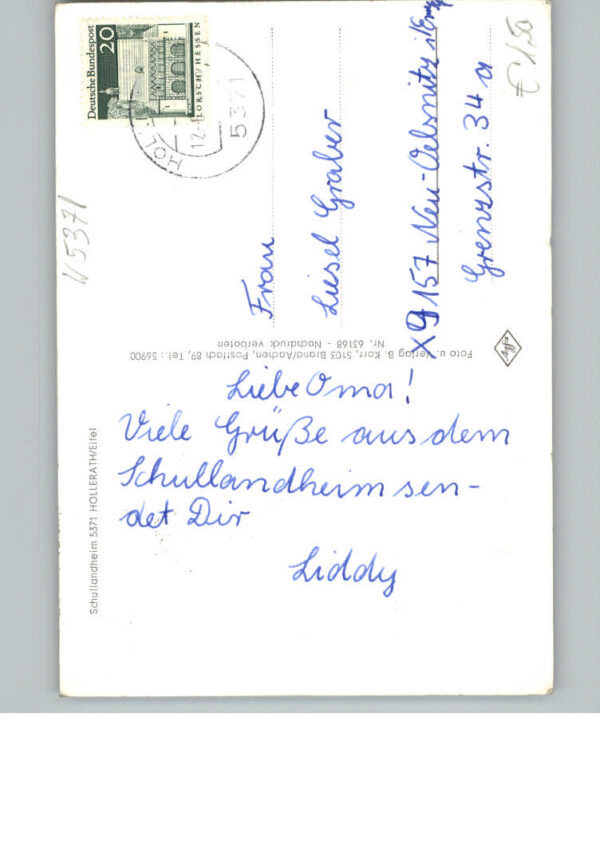 Liebe Oma!
Viele Grüße aus dem
Schullandheim sen-
det Dir
Liddy
Frau
Liesel Graber
X9157 Neu-Oelsnitz i/Erzg
Grenzstr. 34 a
Schullandheim 5371 HOLLERATH/Eifel
Foto u. Verlag B. Korr, 5103 Brand/Aachen, Postfach 89, Tel.: 56900
Nr. 63168 - Nachdruck verboten
Deutsche Bundespost
20
LORSCH/HESSEN
5371
12.
W 5371
€ 1,50